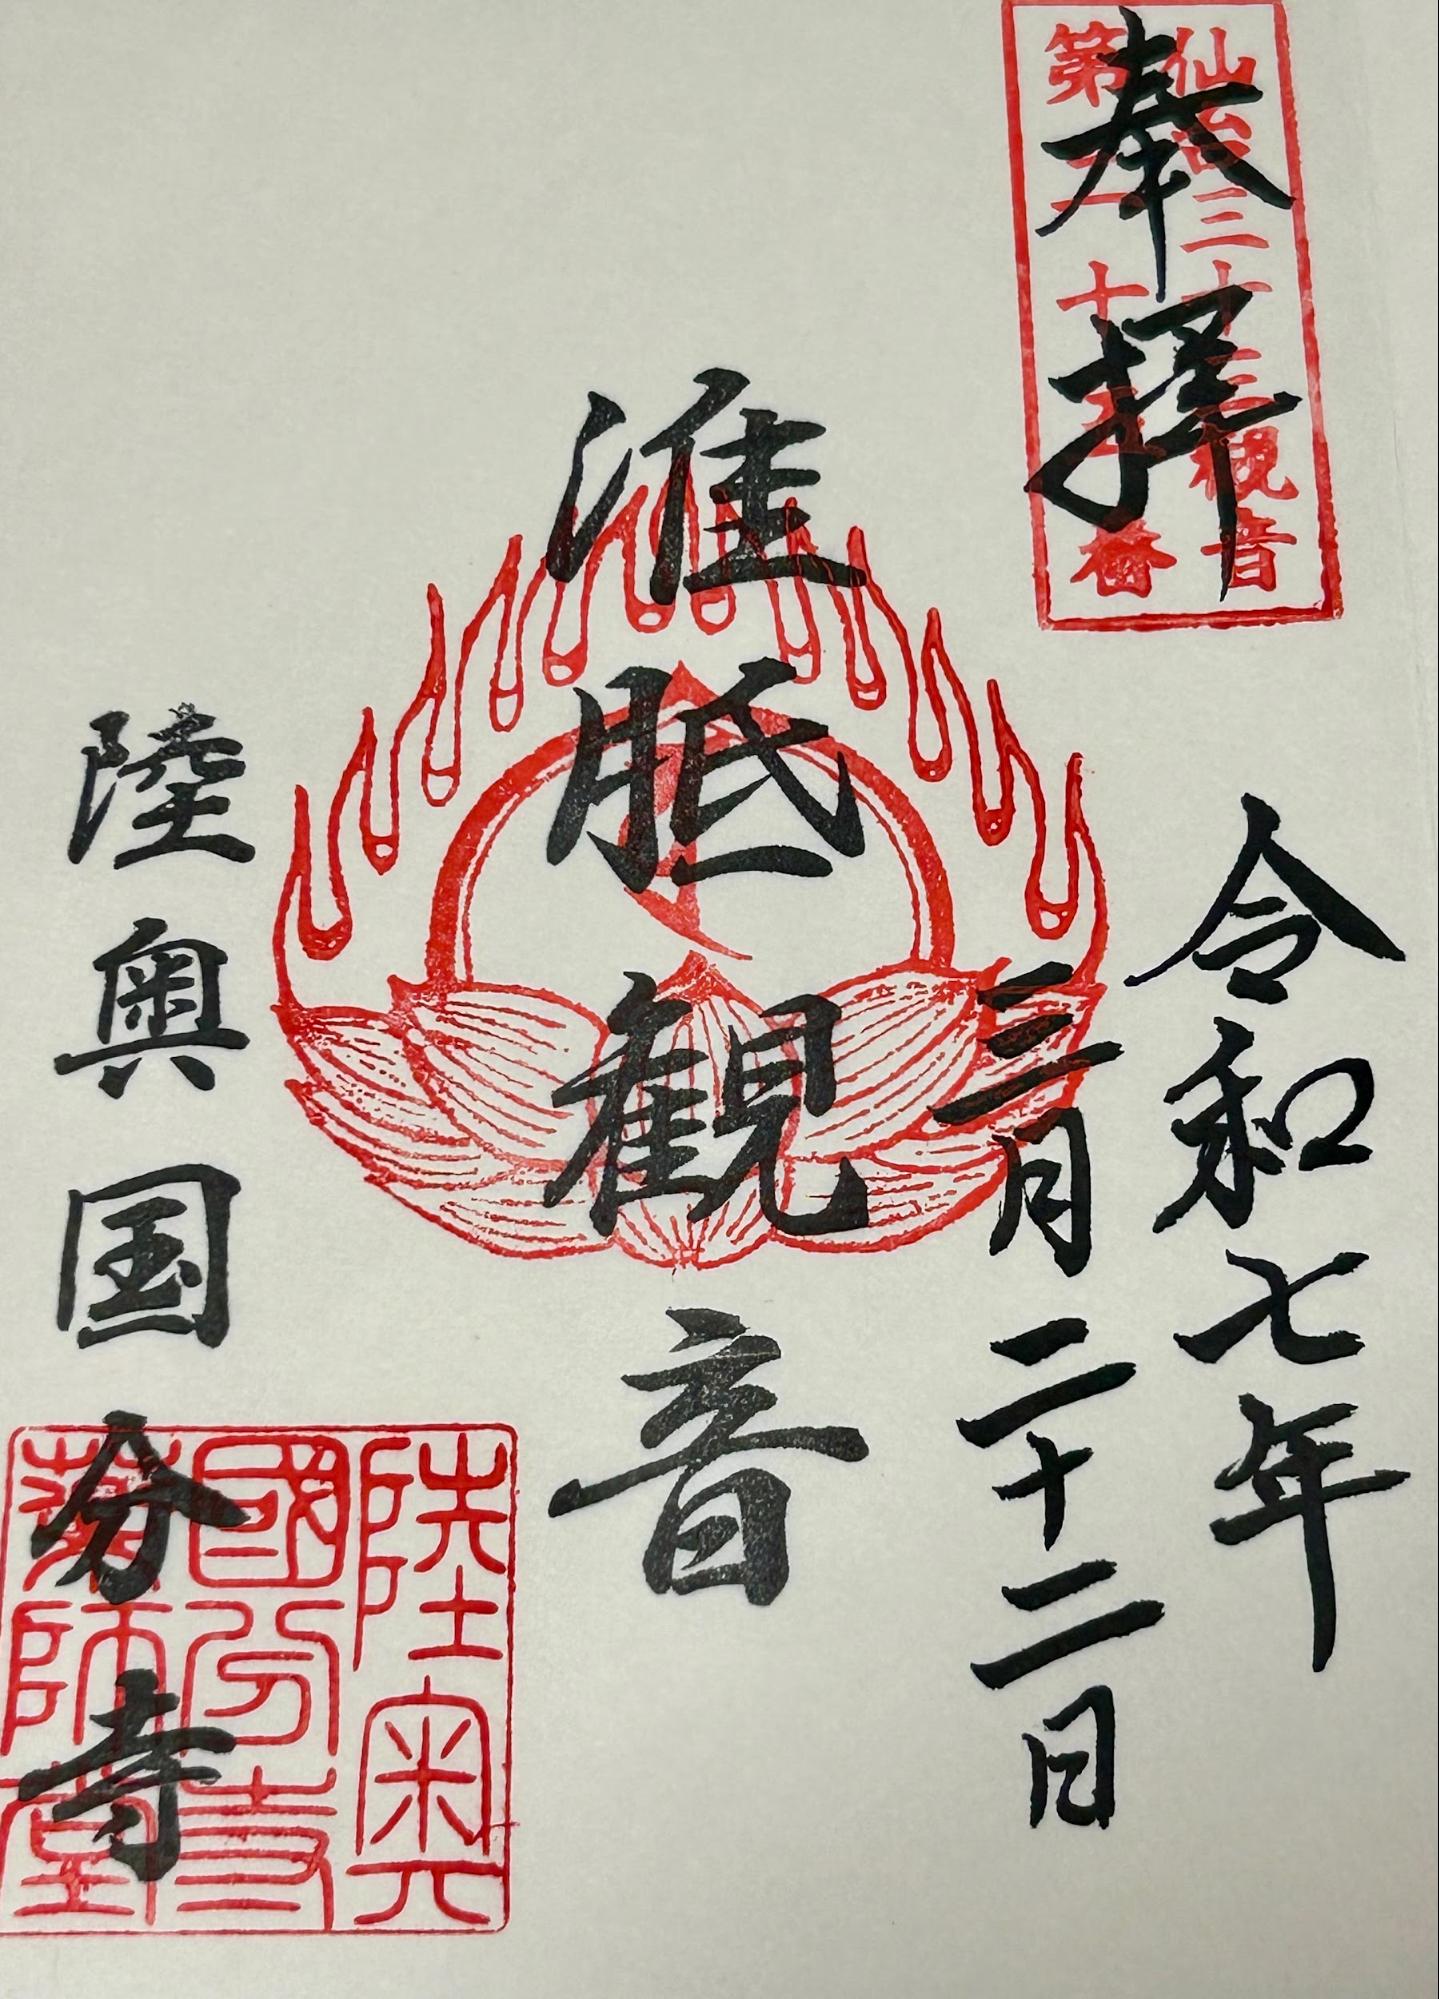 奉拝
仙台三十三観音
第二十五番
令和七年
三月二十二日
准胝観音
陸奥国分寺
陸奥
國分寺
薬師堂